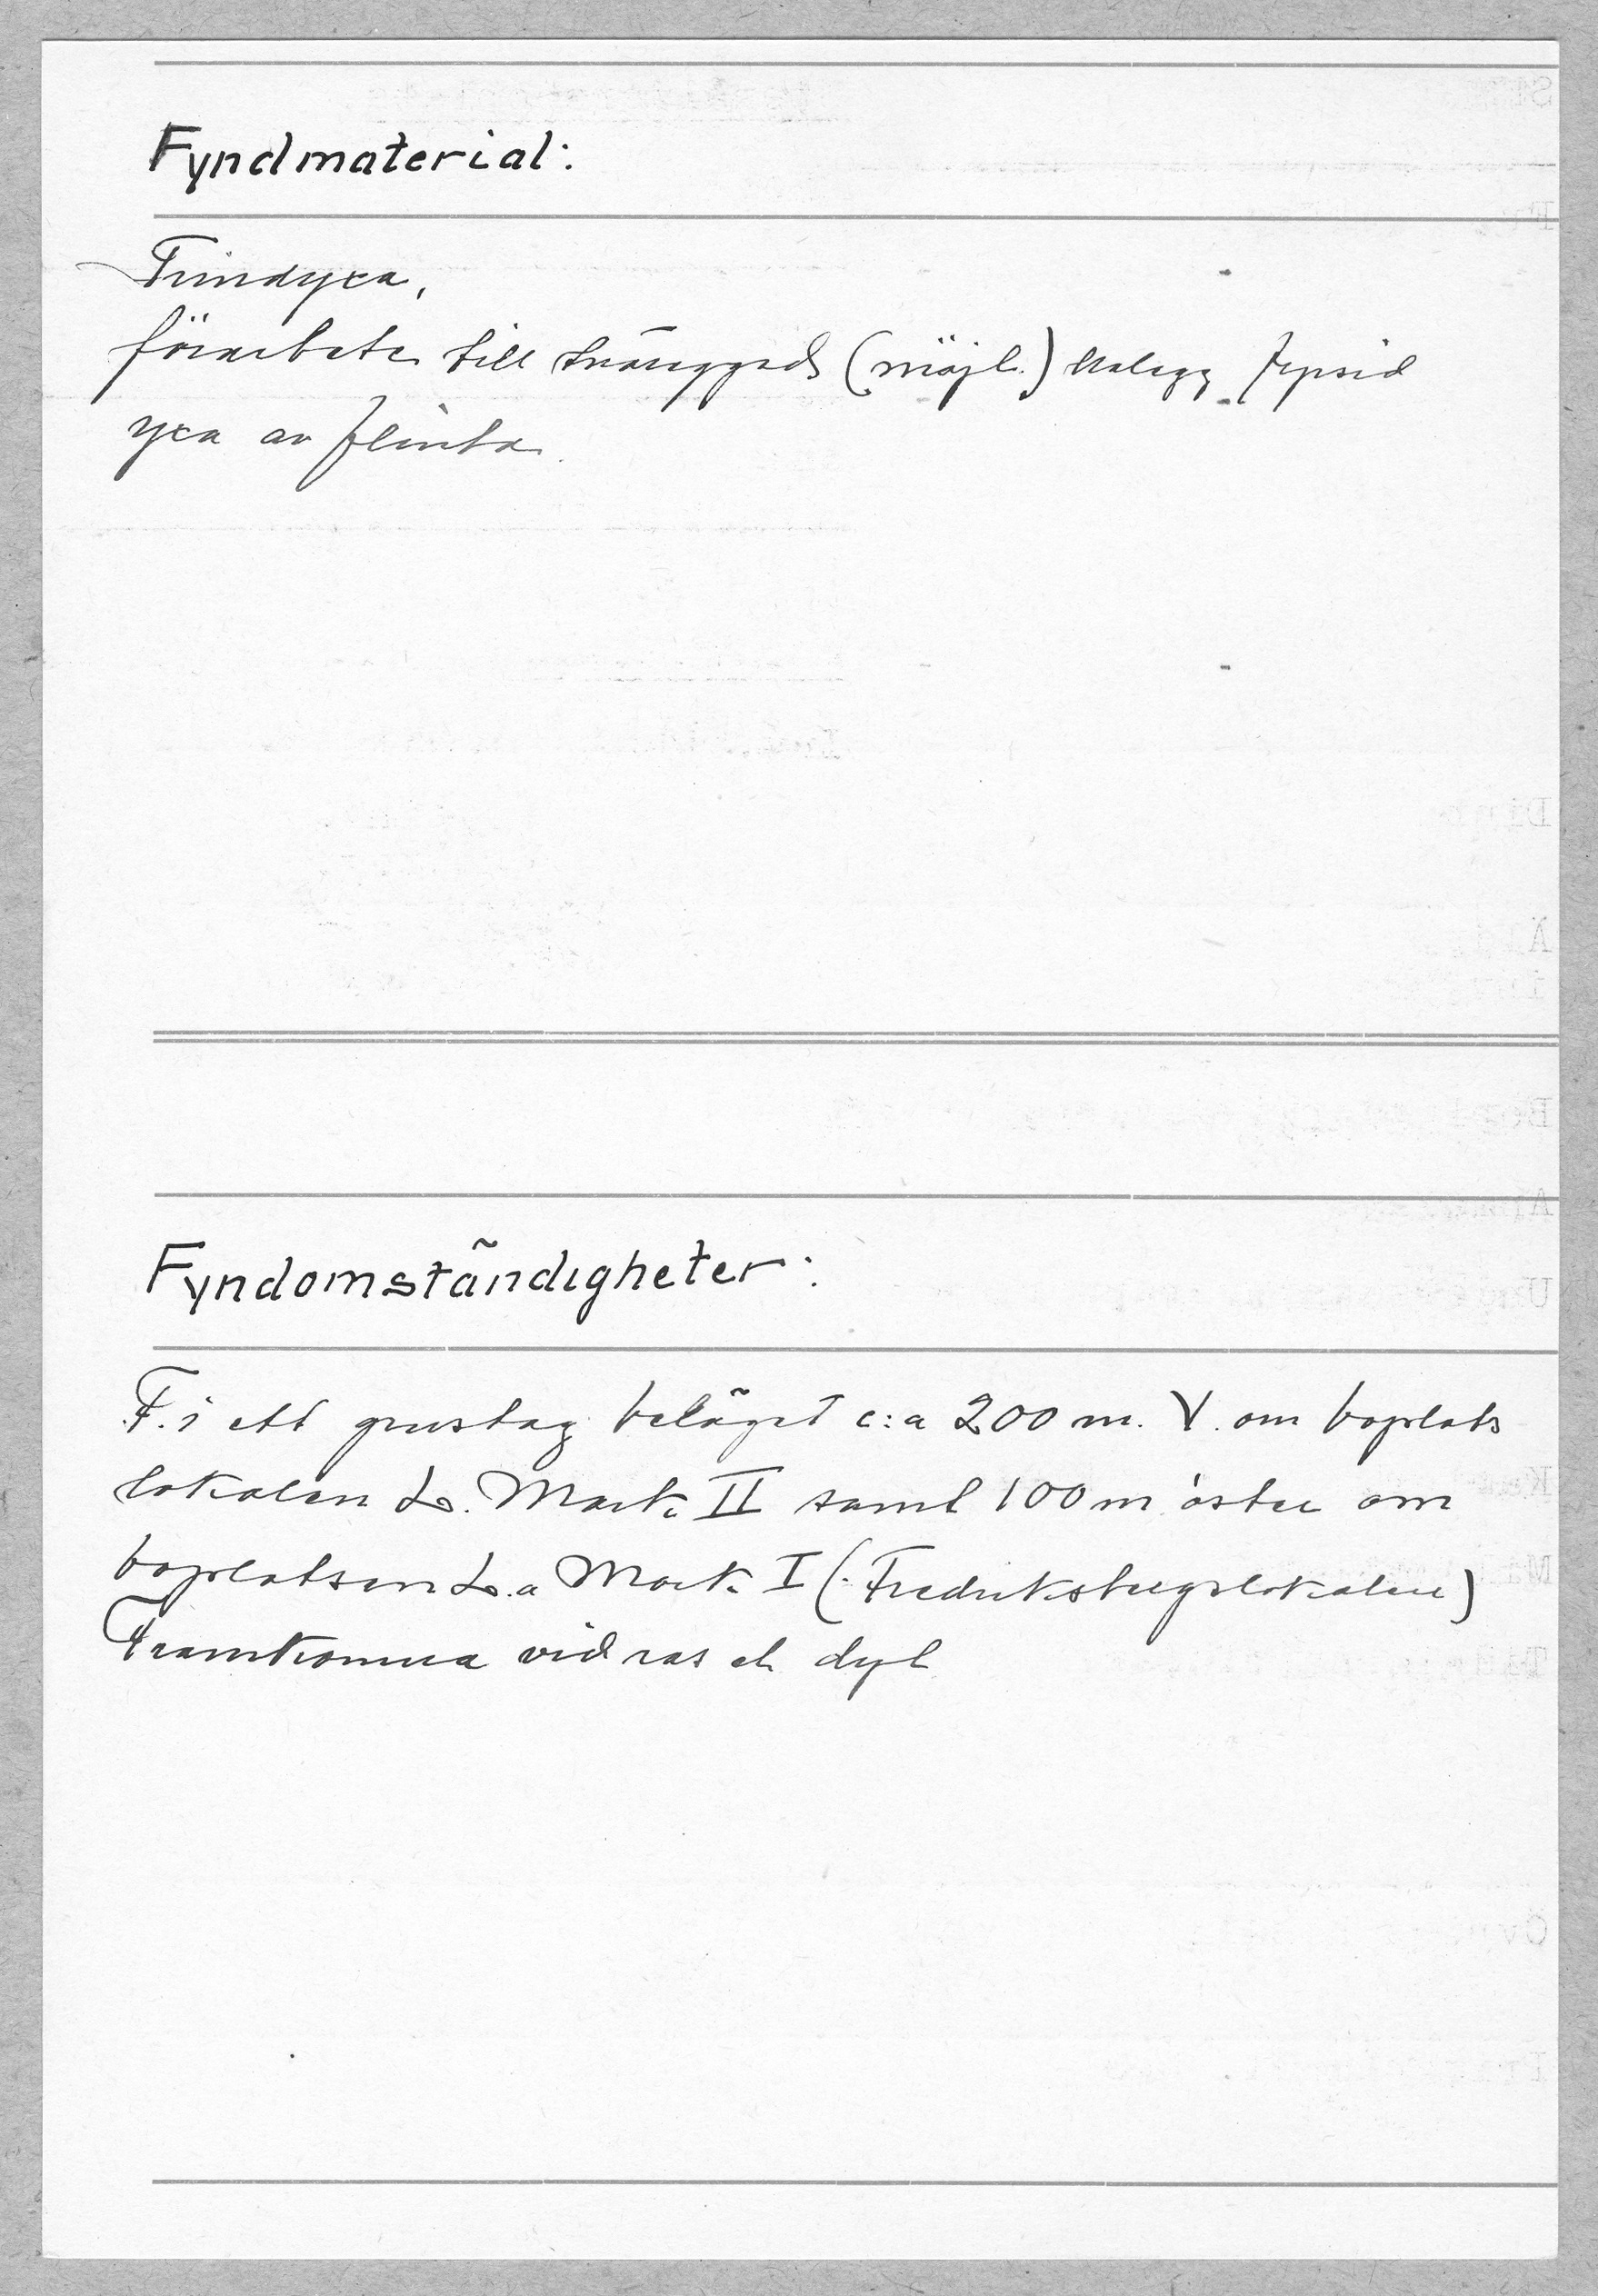 Fyndmaterial:
Trindyxa,
förarbete till tväreggad (möjl.) håleggg fyrsid
yxa av flinta.
Fyndomständigheter:
F. i ett grustag beläget c:a 200 m. V. om boplats
lokalen L. Mark. II samt 100 m öster om
boplatsen L.a Mark. I (Fredriksbergslokalen)
Framkomna vid ras el. dyl